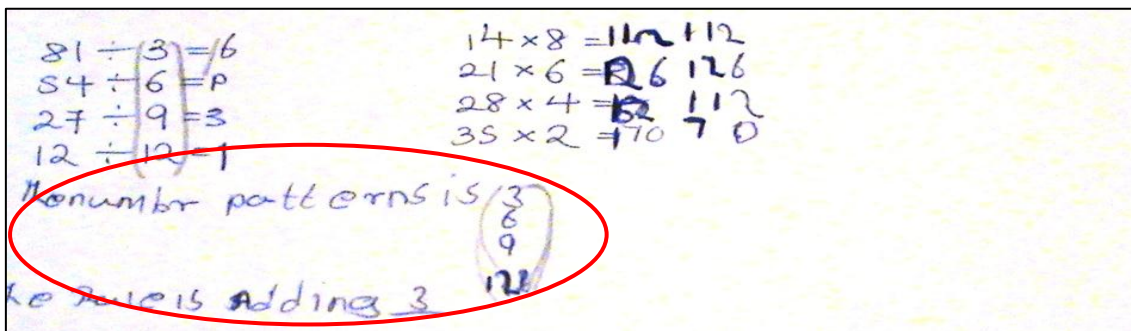 81 ÷ 3 = 6
54 ÷ 6 = P
27 ÷ 9 = 3
12 ÷ 12 = 1
14 × 8 = 112 112
21 × 6 = 126 126
28 × 4 = 112
35 × 2 = 170 70
numbr patterns is 3
6
9
12
Rule is Adding 3